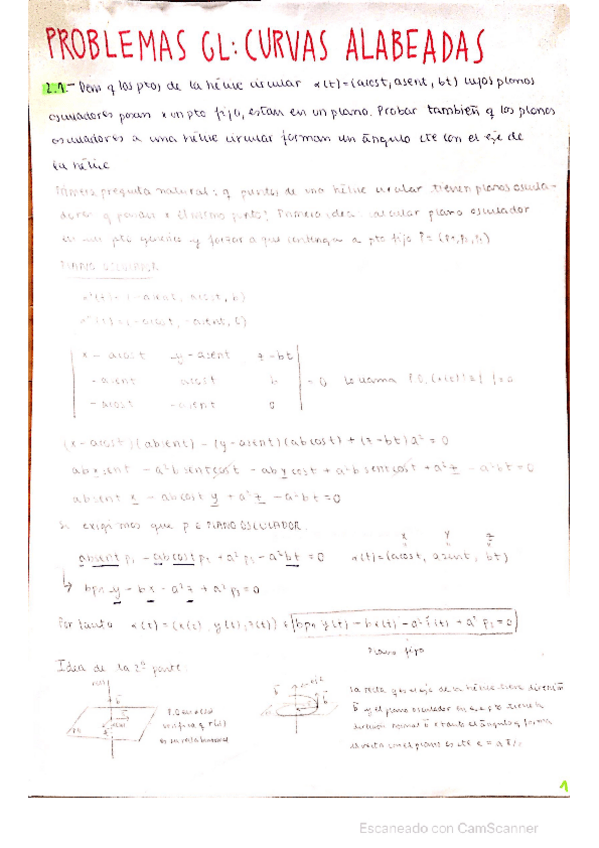 PROBLEMAS GL: CURVAS ALABEADAS
2.1.- Dem q los ptos de la hélice circular α(t)=(acost, asent, bt) cuyos planos
osculadores pasan x un pto fijo, están en un plano. Probar también q los planos
osculadores a una hélice circular forman un ángulo cte con el eje de
la hélice
Primera pregunta natural: q puntos de una hélice circular tienen planos oscula-
dores q pasan x el mismo punto? Primera idea: calcular plano osculador
en un pto genérico y forzar a que contenga a pto fijo P=(p1,p2,p3)
PLANO OSCULADOR
α'(t)=(-asent, acost, b)
α''(t)=(-acost, -asent, 0)
| x-acost y-asent z-bt |
| -asent acost b | = 0
| -acost -asent 0 |
(x-acost)(absent) - (y-asent)(abcost) + (z-bt)a² = 0
abxsent - a²bsentcost - abycost + a²bsentcost + a²z - a²bt = 0
absent x - abcost y + a²z - a²bt = 0
Si exigimos que p ∈ PLANO OSCULADOR.
x y z
absent p1 - abcost p2 + a²p3 - a²bt = 0 α(t)=(acost, asent, bt)
Por tanto α(t)=(x(t), y(t), z(t)) ∈
Plano fijo
Idea de la 2ª parte:
la recta el eje de la hélice tiene dirección
1
Escaneado con CamScanner